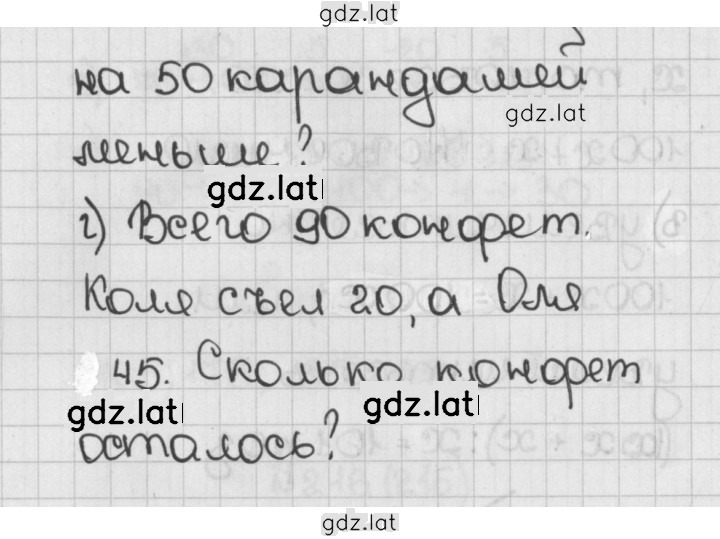 gdz.lat
на 50 карандашей
gdz.lat
меньше?
gdz.lat
г) Всего 90 конфет.
Коля съел 20, а Оля
45. Сколько конфет
gdz.lat gdz.lat
осталось?
gdz.lat